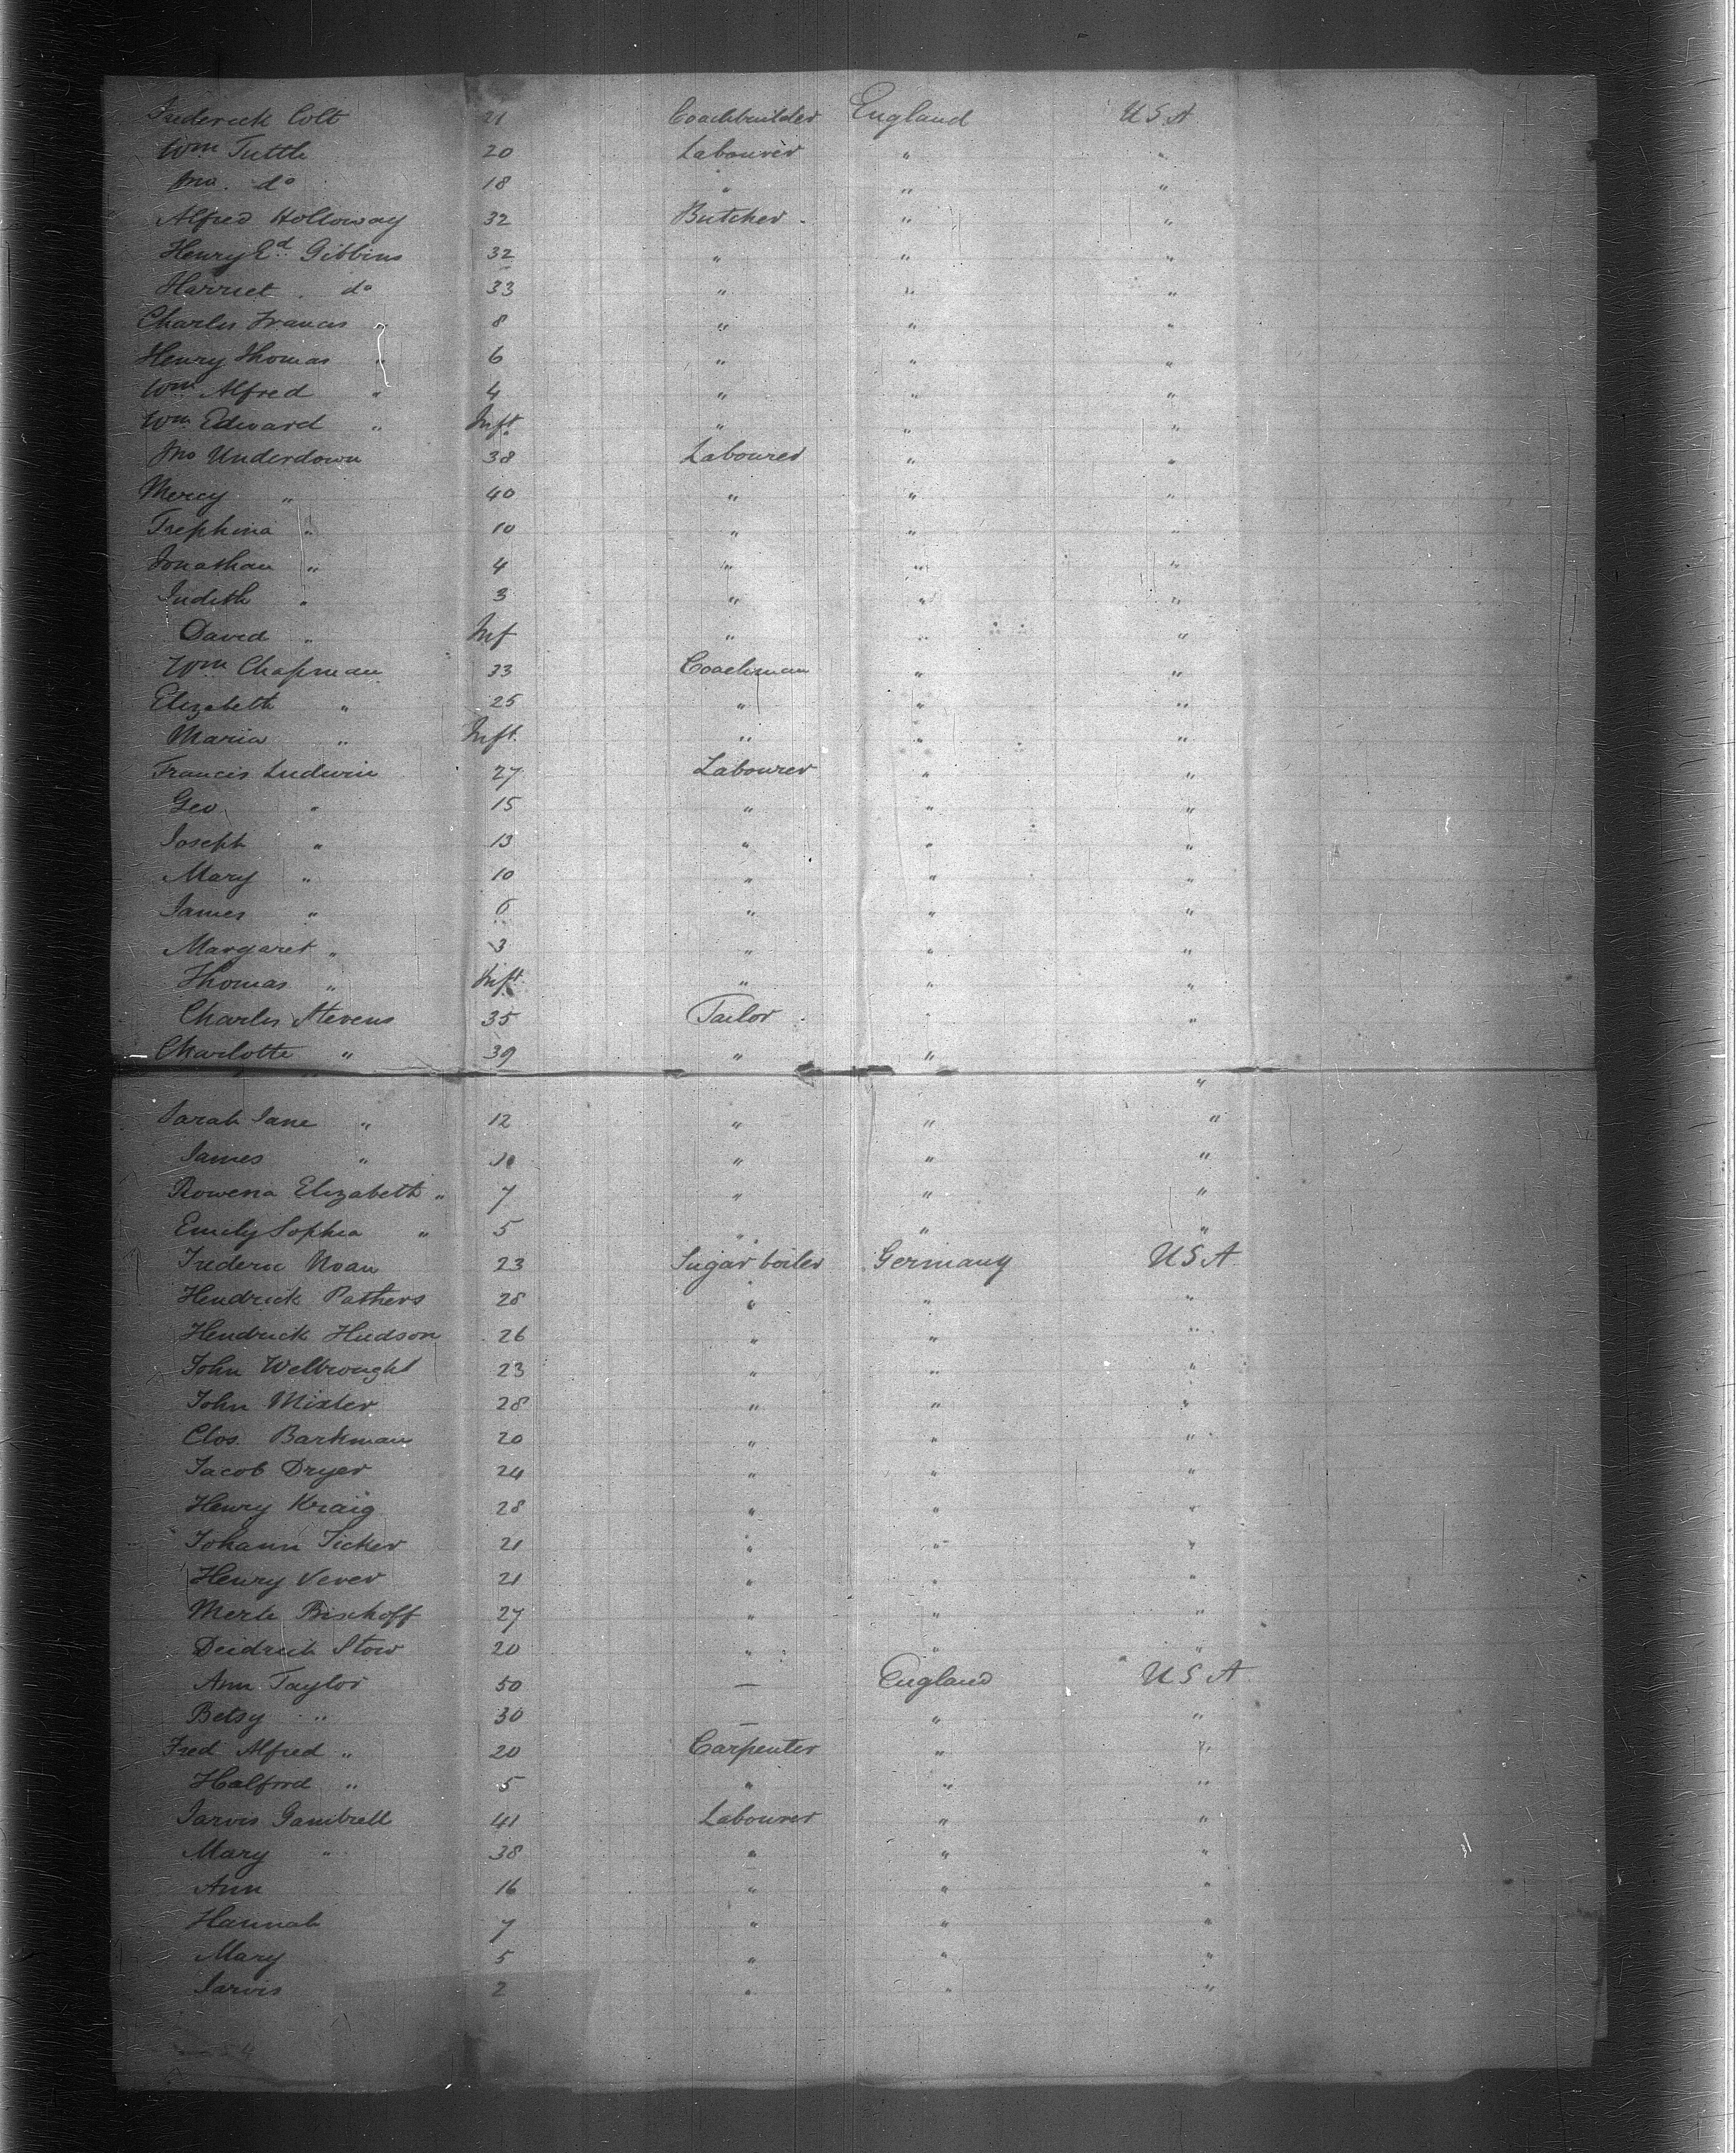 Frederick Colt 21 Coachbuilder England U.S.A
Wm Tuttle 20 Labourer " "
Jno. do 18 " " "
Alfred Holloway 32 Butcher " "
Henry Ed. Gibbins 32 " " "
Harriet do 33 " " "
Charles Francis " 8 " " "
Henry Thomas " 6 " " "
Wm Alfred " 4 " " "
Wm Edward " Inft " " "
Jno Underdown 38 Labourer " "
Mercy " 40 " " "
Trephina " 10 " " "
Jonathan " 4 " " "
Judith " 3 " " "
David " Inf " " "
Wm Chapman 33 Coachman " "
Elizabeth " 25 " " "
Maria " Inft. " " "
Francis Ludwin 27 Labourer " "
Geo " 15 " " "
Joseph " 13 " " "
Mary " 10 " " "
James " " " "
Margaret " 3 " " "
Thomas " Inft. " " "
Charles Stevens 35 Tailor " "
Charlotte " 39 " "
"
Sarah Jane " 12 " " "
James " 10 " " "
Rowena Elizabeth " 7 " " "
Emily Sophia " 5 " " "
Frederic Noan 23 Sugar boiler Germany U S A
Hendrick Pathers 28 " " "
Hendrick Hudson 26 " " "
John Welbrought 23 " " "
John Mixter 28 " " "
Clos. Barkman 20 " " "
Jacob Dryer 24 " " "
Henry Kraig 28 " " "
Johann Ticker 21 " " "
Henry Vever 21 " " "
Merte Bischoff 27 " " "
Deidrich Stow 20 " " "
Ann Taylor 50 — England U S A
Betsy " 30 — " "
Fred Alfred " 20 Carpenter " "
Halford " 5 " " "
Jarvis Gambrell 41 Labourer " "
Mary " 38 " " "
Ann 16 " " "
Hannah 7 " " "
Mary 5 " " "
Jarvis 2 " " "